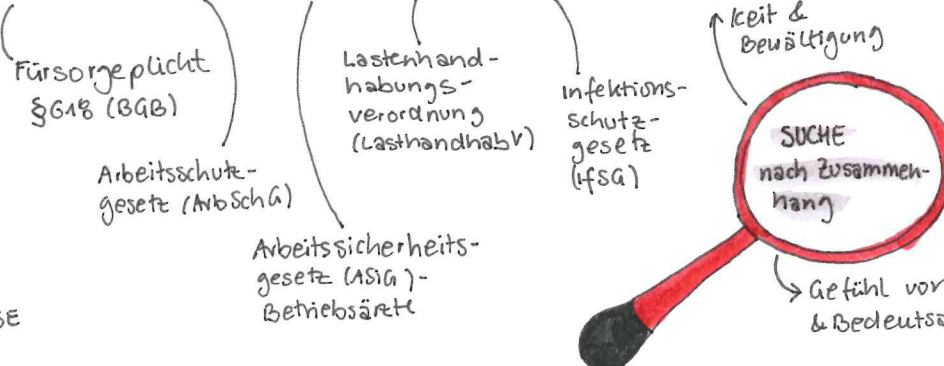 Fürsorgeplicht
§618 (BGB)
Arbeitsschutz-
gesetz (ArbSchG)
Arbeitssicherheits-
gesetz (ASiG)-
Betriebsärzte
Lastenhand-
habungs-
verordnung
(LasthandhabV)
infektions-
schutz-
gesetz
(ifSG)
keit &
Bewältigung
SUCHE
nach Zusammen-
hang
Gefühl
&
SE